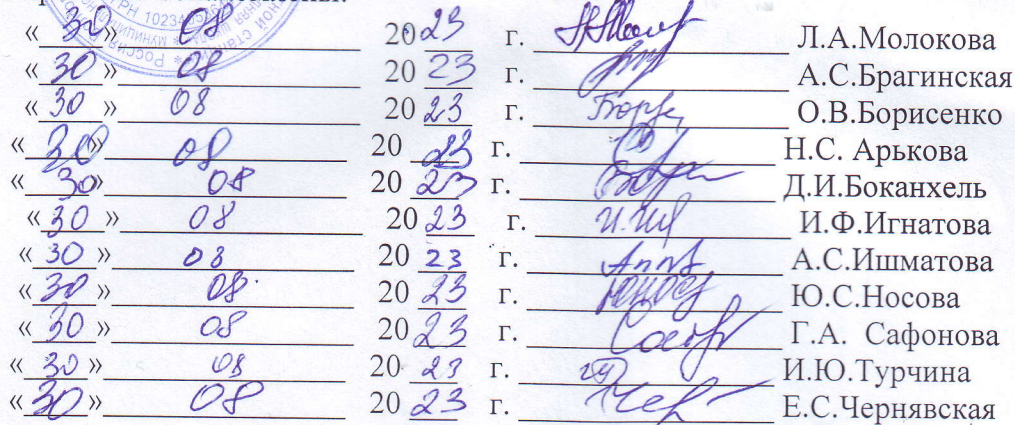 «30» 08 2023 г. Л.А.Молокова
«30» 08 2023 г. А.С.Брагинская
«30» 08 2023 г. О.В.Борисенко
«30» 08 2023 г. Н.С. Арькова
«30» 08 2023 г. Д.И.Боканхель
«30» 08 2023 г. И.Ф.Игнатова
«30» 08 2023 г. А.С.Ишматова
«30» 08 2023 г. Ю.С.Носова
«30» 08 2023 г. Г.А. Сафонова
«30» 08 2023 г. И.Ю.Турчина
«30» 08 2023 г. Е.С.Чернявская